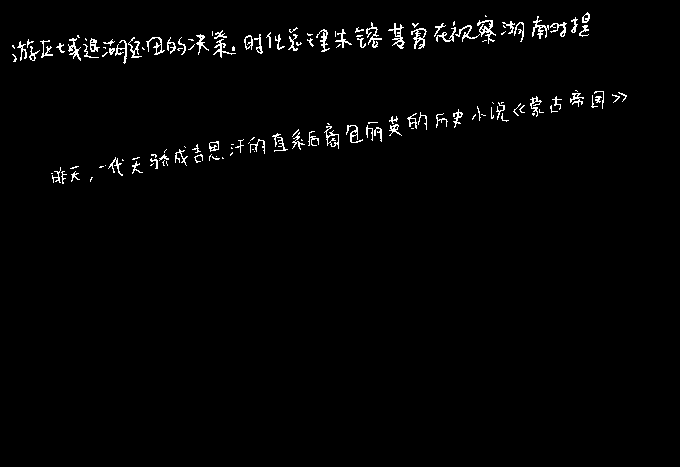 游区域退湖还田的决策。时任总理朱镕基曾在视察湖南时提
昨天,一代天骄成吉思汗的直系后裔包丽英的历史小说《蒙古帝国》